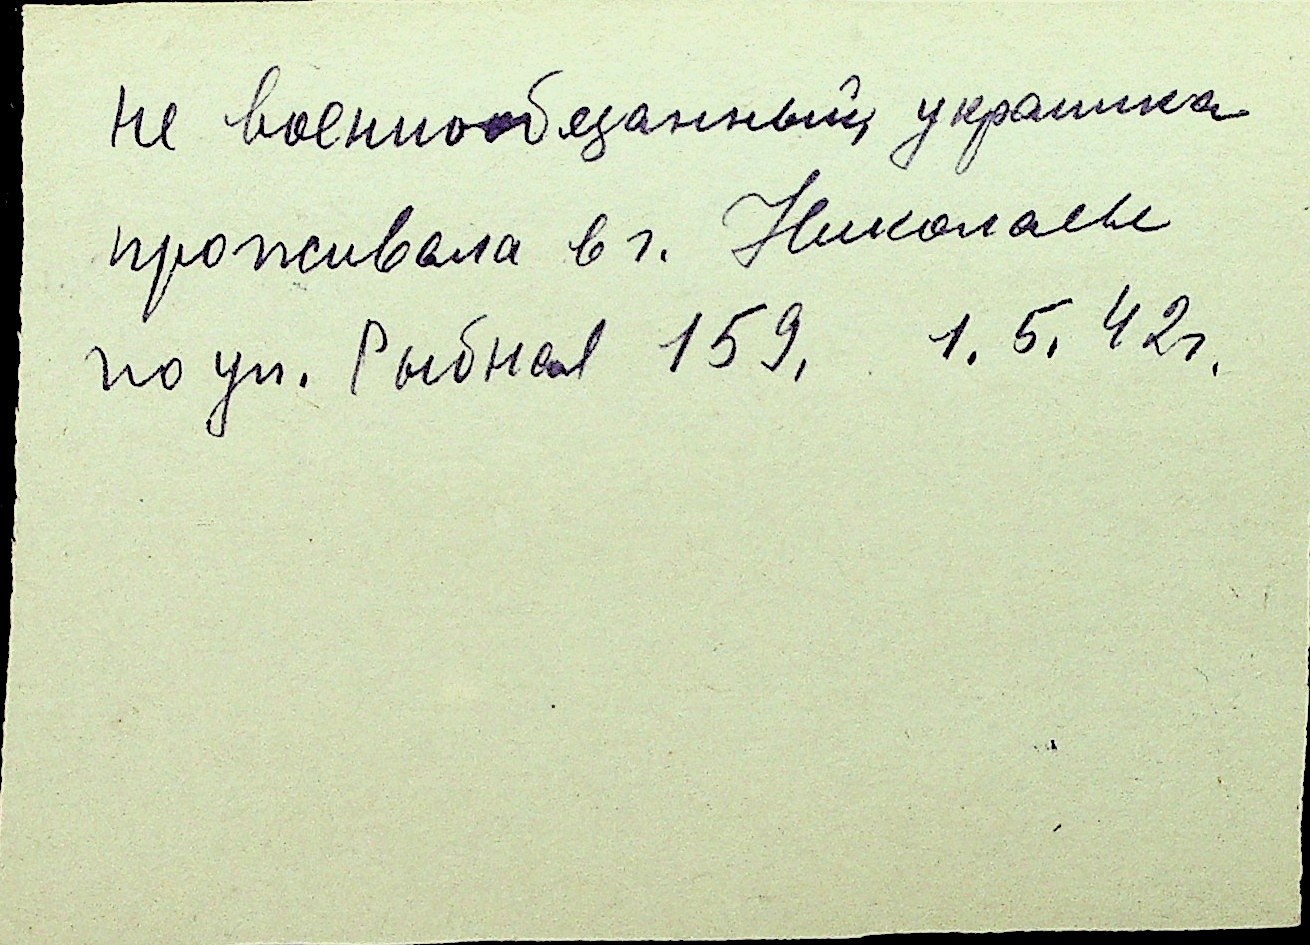 не военнообязанный, украинка
проживала в г. Николаеве
по ул. Рыбная 159, 1.5.42г.